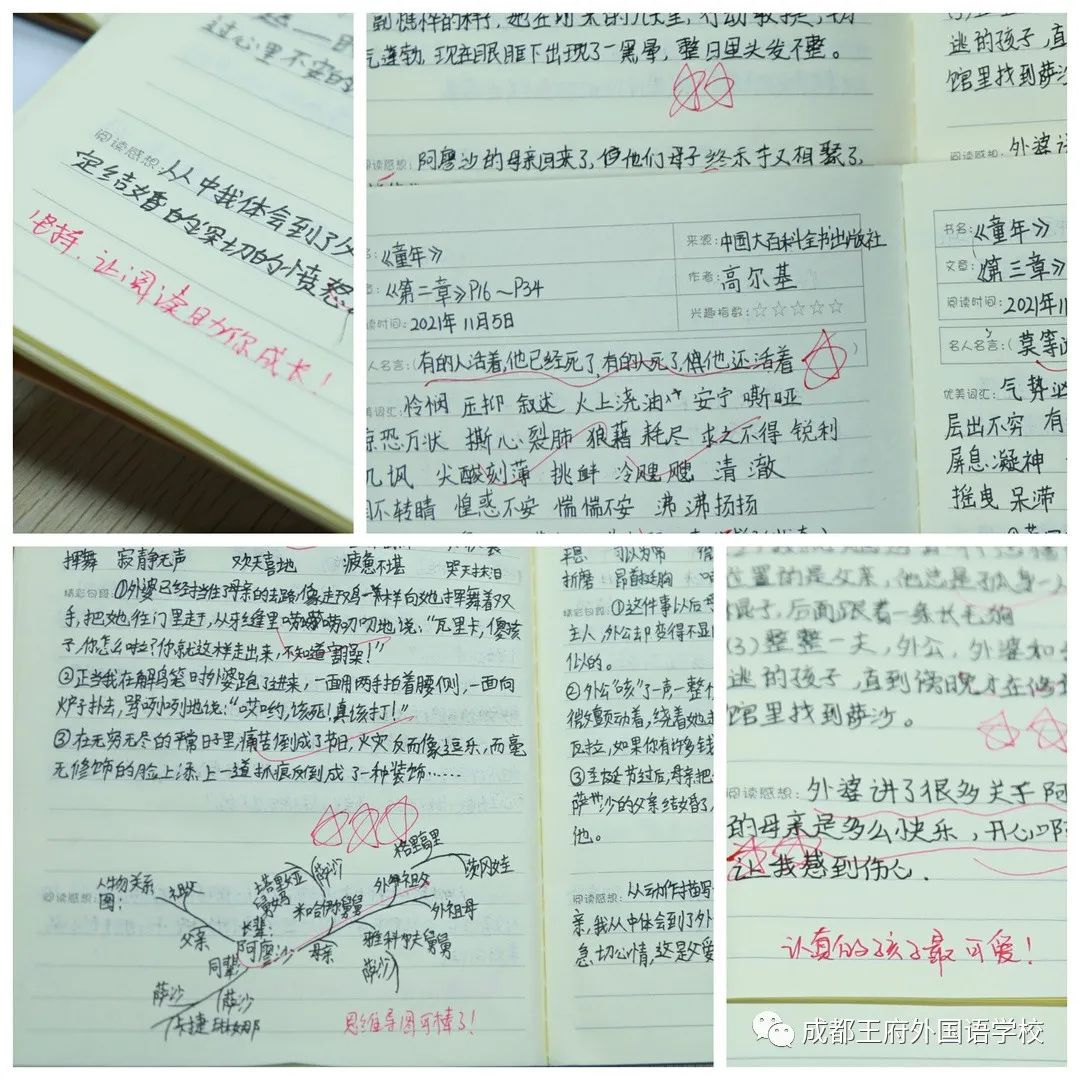 过心里不安的
阅读感想:从中我体会到了父
定结婚的深切的愤怒
坚持,让阅读助你成长!
气蓬勃,现在眼眶下出现了一黑晕,整日里头发不整。
阅读感想:阿廖沙的母亲回来了,但他们母子终于又相聚了,
逃的孩子,直
馆里找到萨沙
阅读感想:外婆讲
《童年》
来源:中国大百科全书出版社
《第二章》P16~P34
作者:高尔基
读时间:2021年11月5日
兴趣指数:☆☆☆☆☆
人名言:(有的人活着,他已经死了,有的人死了,他还活着)
美词汇:怜悯 压抑 叙述 火上浇油 安宁 嘶哑
惊恐万状 撕心裂肺 狼藉 耗尽 求之不得 锐利
讥讽 尖酸刻薄 挑衅 冷飕飕 清澈
目不转睛 惶惑不安 惴惴不安 沸沸扬扬
书名:《童年》
文章:《第三章》
阅读时间:2021年11
名人名言:(莫等
优美词汇:气势
层出不穷 有
屏息凝神
摇曳 呆滞
挥舞 寂静无声 欢天喜地 疲惫不堪 哭天抹泪
精彩句段:①外婆已经挡住母亲的去路,像走鸡一样向她挥舞着双
手,把她往门里赶,从牙缝里唠唠叨叨地说:“瓦里卡,傻孩
子,你怎么啦?你就这样走出来,不知道害臊!”
②正当我在解鸟笼时外婆跑了进来,一面用两手拍着腰侧,一面向
炉子扑去,骂咧咧地说:“哎哟,该死!真该打!”
③在无穷无尽的平常日子里,痛苦倒成了节日,火灾反而像逗乐,而毫
无修饰的脸上添上一道抓痕反倒成了一种装饰……
阅读感想:
人物关系
图:
祖父
父亲
同辈
长辈:
阿廖沙
母亲
塔里娅
舅妈
(萨沙)
米哈伊舅舅
外曾祖父
格里高里
茨冈娃
外祖母
雅科夫舅舅
(萨沙)
萨沙
(萨沙
卡捷琳娜
思维导图可棒了!
平息 可以为常
折磨 昂首挺胸
精彩句段:①这件事以后
主人,外公却变得不显
似的。
②外公“咳”了一声一整个
微颤动着,绕着她走
瓦拉,如果你有许多钱
③圣诞节过后,母亲把
萨沙的父亲结婚了,
他。
阅读感想:从动作描写
亲,我从中体会到了外
急切心情,这是父爱
位置的是父亲,他总是孤身一人
棍子,后面跟着一条长毛狗
(3)整整一天,外公,外婆和
逃的孩子,直到傍晚才在
馆里找到萨沙。
阅读感想:外婆讲了很多关于阿
的母亲是多么快乐,开心啊
让我感到伤心.
认真的孩子最可爱!
成都王府外国语学校